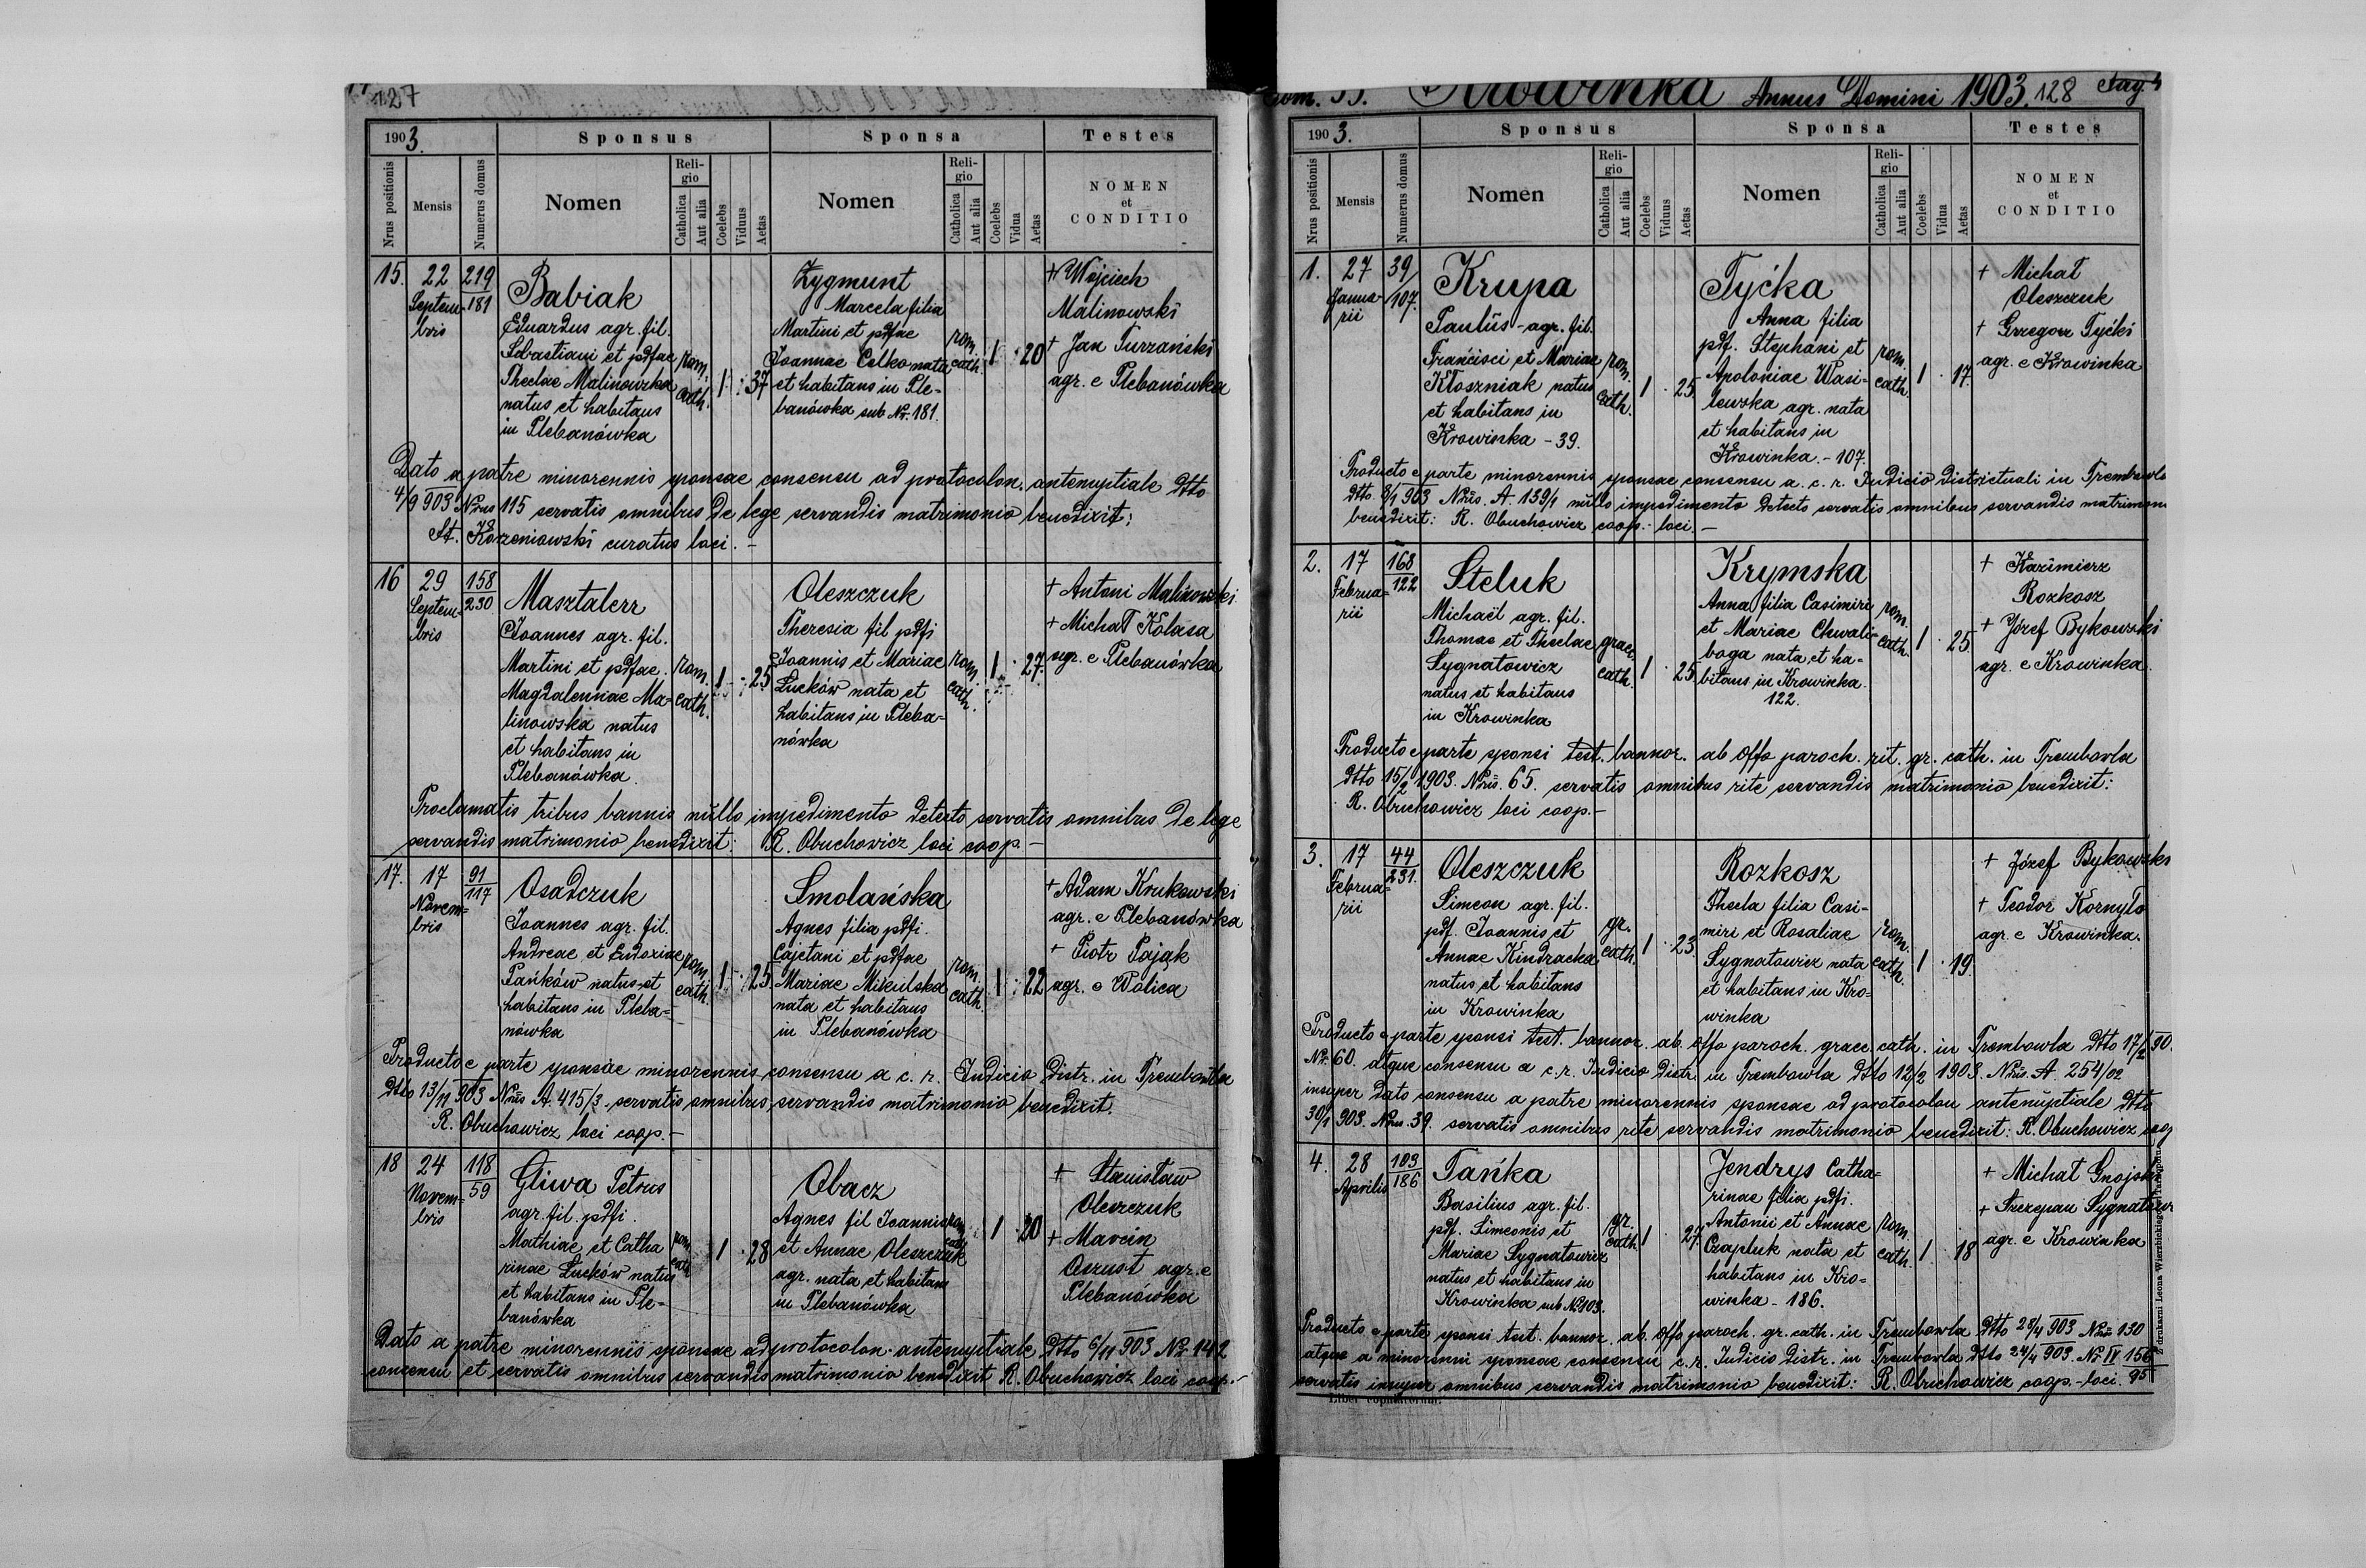 127
1903.
Sponsus
Sponsa
Testes
Nrus positionis
Mensis
Numerus domus
Nomen
Religio
Catholica
Aut alia
Coelebs
Viduus
Aetas
Nomen
Religio
Catholica
Aut alia
Coelebs
Vidua
Aetas
NOMEN
et
CONDITIO
15.
22
Septem-
bris
219
181
Babiak
Eduardus agr. fil.
Sebastiani et pdfae
Theclae Malinowska
natus et habitans
in Plebanówka
rom.
cath.
1
37
Zygmunt
Marcela filia
Martini et pdfae
Joannae Celko nata
et habitans in Ple-
banówka sub Nr. 181.
rom.
cath.
1
20
+ Wojciech
Malinowski
+ Jan Turzański
agr. e Plebanówka
Dato a patre minorennis sponsae consensu ad protocolon. antenuptiale dtto
4/9 903 Nrus 115 servatis omnibus de lege servandis matrimonio benedixit:
St. Korzeniowski curatus loci. –
16
29
Septem-
bris
158
230
Masztalerr
Joannes agr. fil.
Martini et pdfae.
Magdalennae Ma-
linowska natus
et habitans in
Plebanówka.
rom.
cath.
1
25
Oleszczuk
Theresia fil pdfi
Joannis et Mariae
Lucków nata et
habitans in Pleba-
nówka
rom.
cath.
1
27.
+ Antoni Malinowski
+ Michał Kolasa
agr. e Plebanówka
Proclamatis tribus bannis nullo impedimento detecto servatis omnibus de lege
servandis matrimonio benedixit: R. Obuchowicz loci coop. –
17.
17
Novem=
bris
91
117
Osadczuk
Joannes agr. fil.
Andreae et Eudoxiae
Pańków natus et
habitans in Pleba=
nówka
rom.
cath.
1
25.
Smolańska
Agnes filia pdfi.
Cajetani et pdfae
Mariae Mikulska
nata et habitans
in Plebanówka
rom.
cath.
1
22
+ Adam Krukowski
agr. e Plebanówka
+ Piotr Pająk
agr. e Wolica
Producto e parte sponsae minorennis consensu a c. r. Judicio distr. in Trembowla
dtto 13/11 903 Nrus A. 415/3. servatis omnibus servandis matrimonio benedixit.
R. Obuchowicz loci coop. –
18
24
Novem=
bris
118
59
Gliwa Petrus
agr. fil. pdfi.
Mathiae et Catha
rinae Lucków natus
et habitans in Ple-
banówka
rom.
cath
1
28
Obacz
Agnes fil Joannis
et Annae Oleszczuk
agr. nata et habitans
in Plebanówka
rom
cath
1
20
+ Stanisław
Oleszczuk
+ Marcin
Oszust agr. e
Plebanówka
Dato a patre minorennis sponsae ad protocolon. antenuptiale dtto 6/11 903 Nr. 142
consensu et servatis omnibus servandis matrimonio benedixit R. Obuchowicz loci coop. –
Tom. 33. Krowinka Annus Domini 1903. 128 Pag.
1903.
Sponsus
Sponsa
Testes
Nrus positionis
Mensis
Numerus domus
Nomen
Religio
Catholica
Aut alia
Coelebs
Viduus
Aetas
Nomen
Religio
Catholica
Aut alia
Coelebs
Vidua
Aetas
NOMEN
et
CONDITIO
1.
27
Janua-
rii
39/
107.
Krupa
Paulus - agr. fil.
Francisci et Mariae
Kłoszniak natus
et habitans in
Krowinka - 39.
rom.
cath.
1
25
Tyćka
Anna filia
pdf. Stephani et
Apoloniae Wasi-
lewska agr. nata
et habitans in
Krowinka. - 107.
rom.
cath.
1
17.
+ Michał
Oleszczuk
+ Grzegorz Tyćki
agr. e Krowinka
Producto e parte minorennis sponsae consensu a. c. r. Judicio districtuali in Trembowla
dtto 8/1 903 Nrus. A. 139/1 nullo impedimento detecto servatis omnibus servandis matrimon
benedixit: R. Obuchowicz coop. loci. –
2.
17
Februa=
rii
168
122
Steluk
Michaël agr. fil.
Thomae et Theclae
Sygnatowicz
natus et habitans
in Krowinka
graec.
cath.
1
25
Krymska
Anna filia Casimiri
et Mariae Chwali-
boga nata et ha-
bitans in Krowinka.
122.
rom.
cath.
1
25
+ Kazimierz
Rozkosz
+ Józef Bykowski
agr. e Krowinka.
Producto e parte sponsi test. bannor. ab offo paroch. rit. gr. cath. in Trembowla
dtto 15/2 1903. Nrus. 65. servatis omnibus rite servandis matrimonio benedixit:
R. Obuchowicz loci coop. –
3.
17
Februa=
rii
44
231.
Oleszczuk
Simeon agr. fil.
pdf. Joannis et
Annae Kindracka
natus et habitans
in Krowinka
gr.
cath.
1
23
Rozkosz
Thecla filia Casi-
miri et Rosaliae
Sygnatowicz nata
et habitans in Kro=
winka
rom.
cath.
1
19.
+ Józef Bykowski
+ Teodor Kornyło
agr. e Krowinka.
Producto e parte sponsi test. bannor. ab. offo paroch. graec. cath. in Trembowla dtto 17/2 90.
Nr. 60. atque consensu a c.r. Judicio distr. in Trembowla dtto 12/2 1903. Nrus. A. 254/02
insuper dato consensu a patre minorennis sponsae ad protocolon antenuptiale dtto
30/1 903. Nrus. 39. servatis omnibus rite servandis matrimonio benedixit: R. Obuchowicz coop
4.
28
Aprilis
103
186
Tańka
Basilius agr. fil.
pdf. Simeonis et
Mariae Sygnatowicz
natus et habitans in
Krowinka sub Nr 103.
gr.
cath
1
27
Jendrys Catha=
rinae filia pdfi.
Antonii et Annae
Czapluk nata et
habitans in Kro=
winka - 186.
rom.
cath.
1
18
+ Michał Gnojski
+ Szczepan Sygnatowi
agr. e Krowinka
Producto e parte sponsi test. bannor. ab. offo paroch. gr. cath. in Trembowla dtto 28/4 903 Nrus 130
atque a minorenni sponsae consensu c. r. Judicio distr. in Trembowla dtto 24/4 903. Nr. IV 156
servatis insuper omnibus servandis matrimonio benedixit: R. Obuchowicz coop. - loci. 95
Liber copulatorum.
Z drukarni Leona Wierzbickiego w Tarnopolu